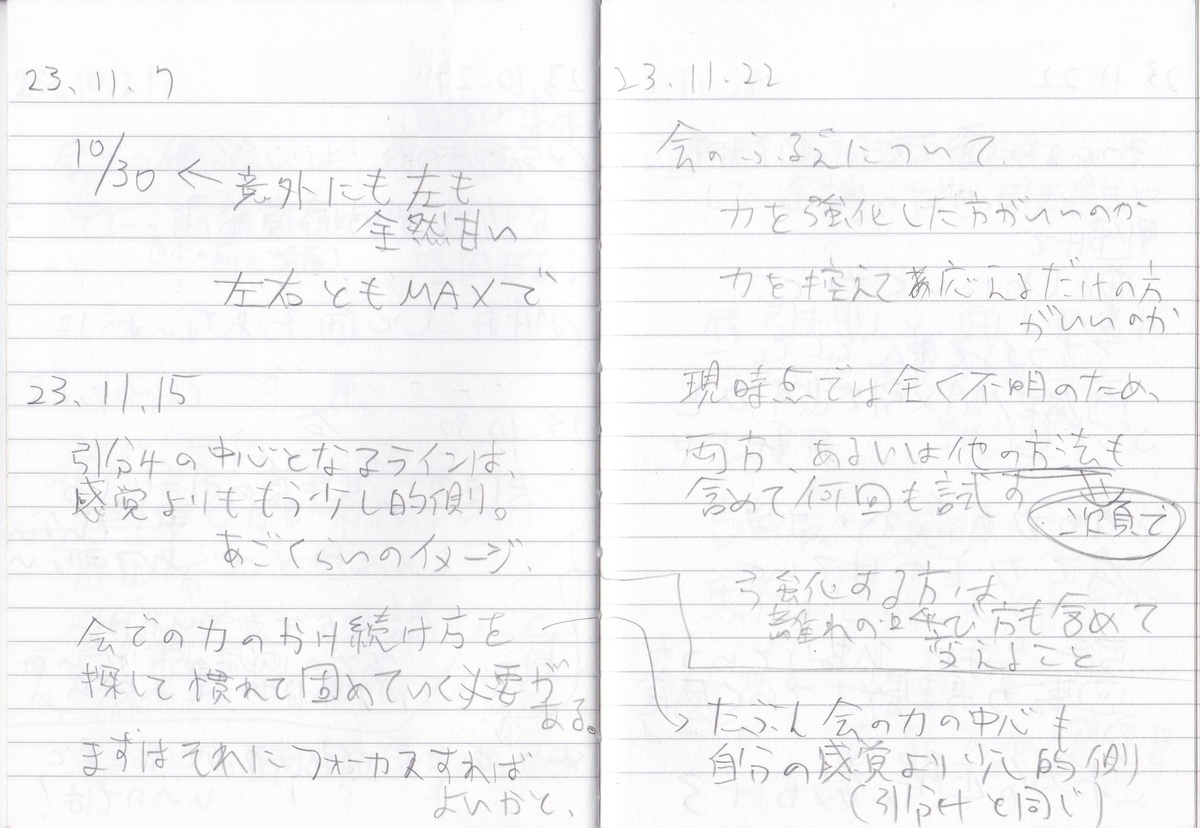 23.11.7
10/30 ← 意外にも左も
全然甘い
左右ともMAXで
23.11.15
引分けの中心となるラインは、
感覚よりももう少し的側。
あごくらいのイメージ.
会での力のかけ続け方を
探して慣れて固めていく必要が
ある。
まずはそれにフォーカスすれば
よいかと、
23.11.22
会のふるえについて、
力を強化した方がいいのか
力を控えて えるだけの方
がいいのか
現時点では全く不明のため、
両方、あるいは他の方法も
含めて何回も試す
次頁で
強化する方は
離れの 方も含めて
考えること
たぶん会の力の中心も
自分の感覚より少し的側
(引分けと同じ)